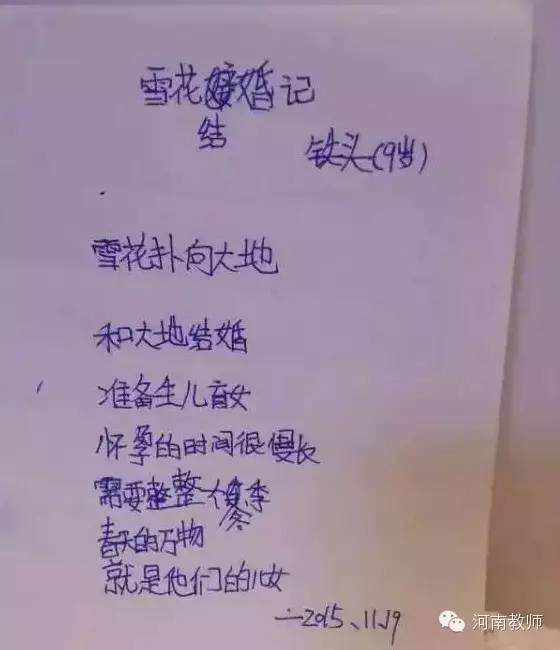 雪花结婚记
铁头(9岁)
雪花扑向大地
和大地结婚
准备生儿育女
怀孕的时间很慢长
需要整整一个冬季
春天的万物
就是他们的儿女
—2015、11.19
河南教师